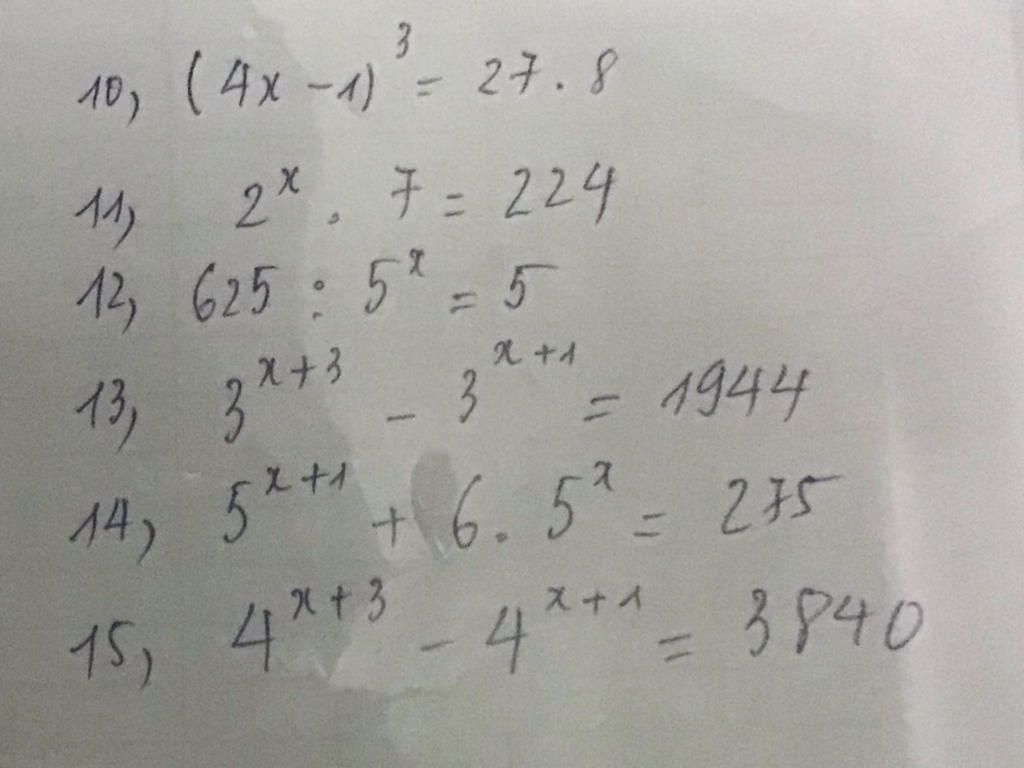 10, (4x - 1)³ = 27 . 8
11, 2ˣ . 7 = 224
12, 625 : 5ˣ = 5
13, 3ˣ⁺³ - 3ˣ⁺¹ = 1944
14, 5ˣ⁺¹ + 6 . 5ˣ = 275
15, 4ˣ⁺³ - 4ˣ⁺¹ = 3840